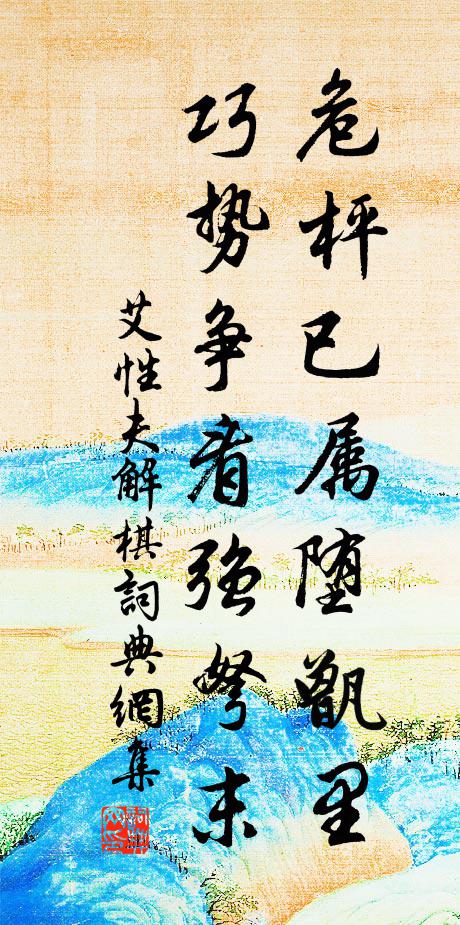 危枰已属堕甑里
巧势争看強弩末
艾性夫解棋詞典網集